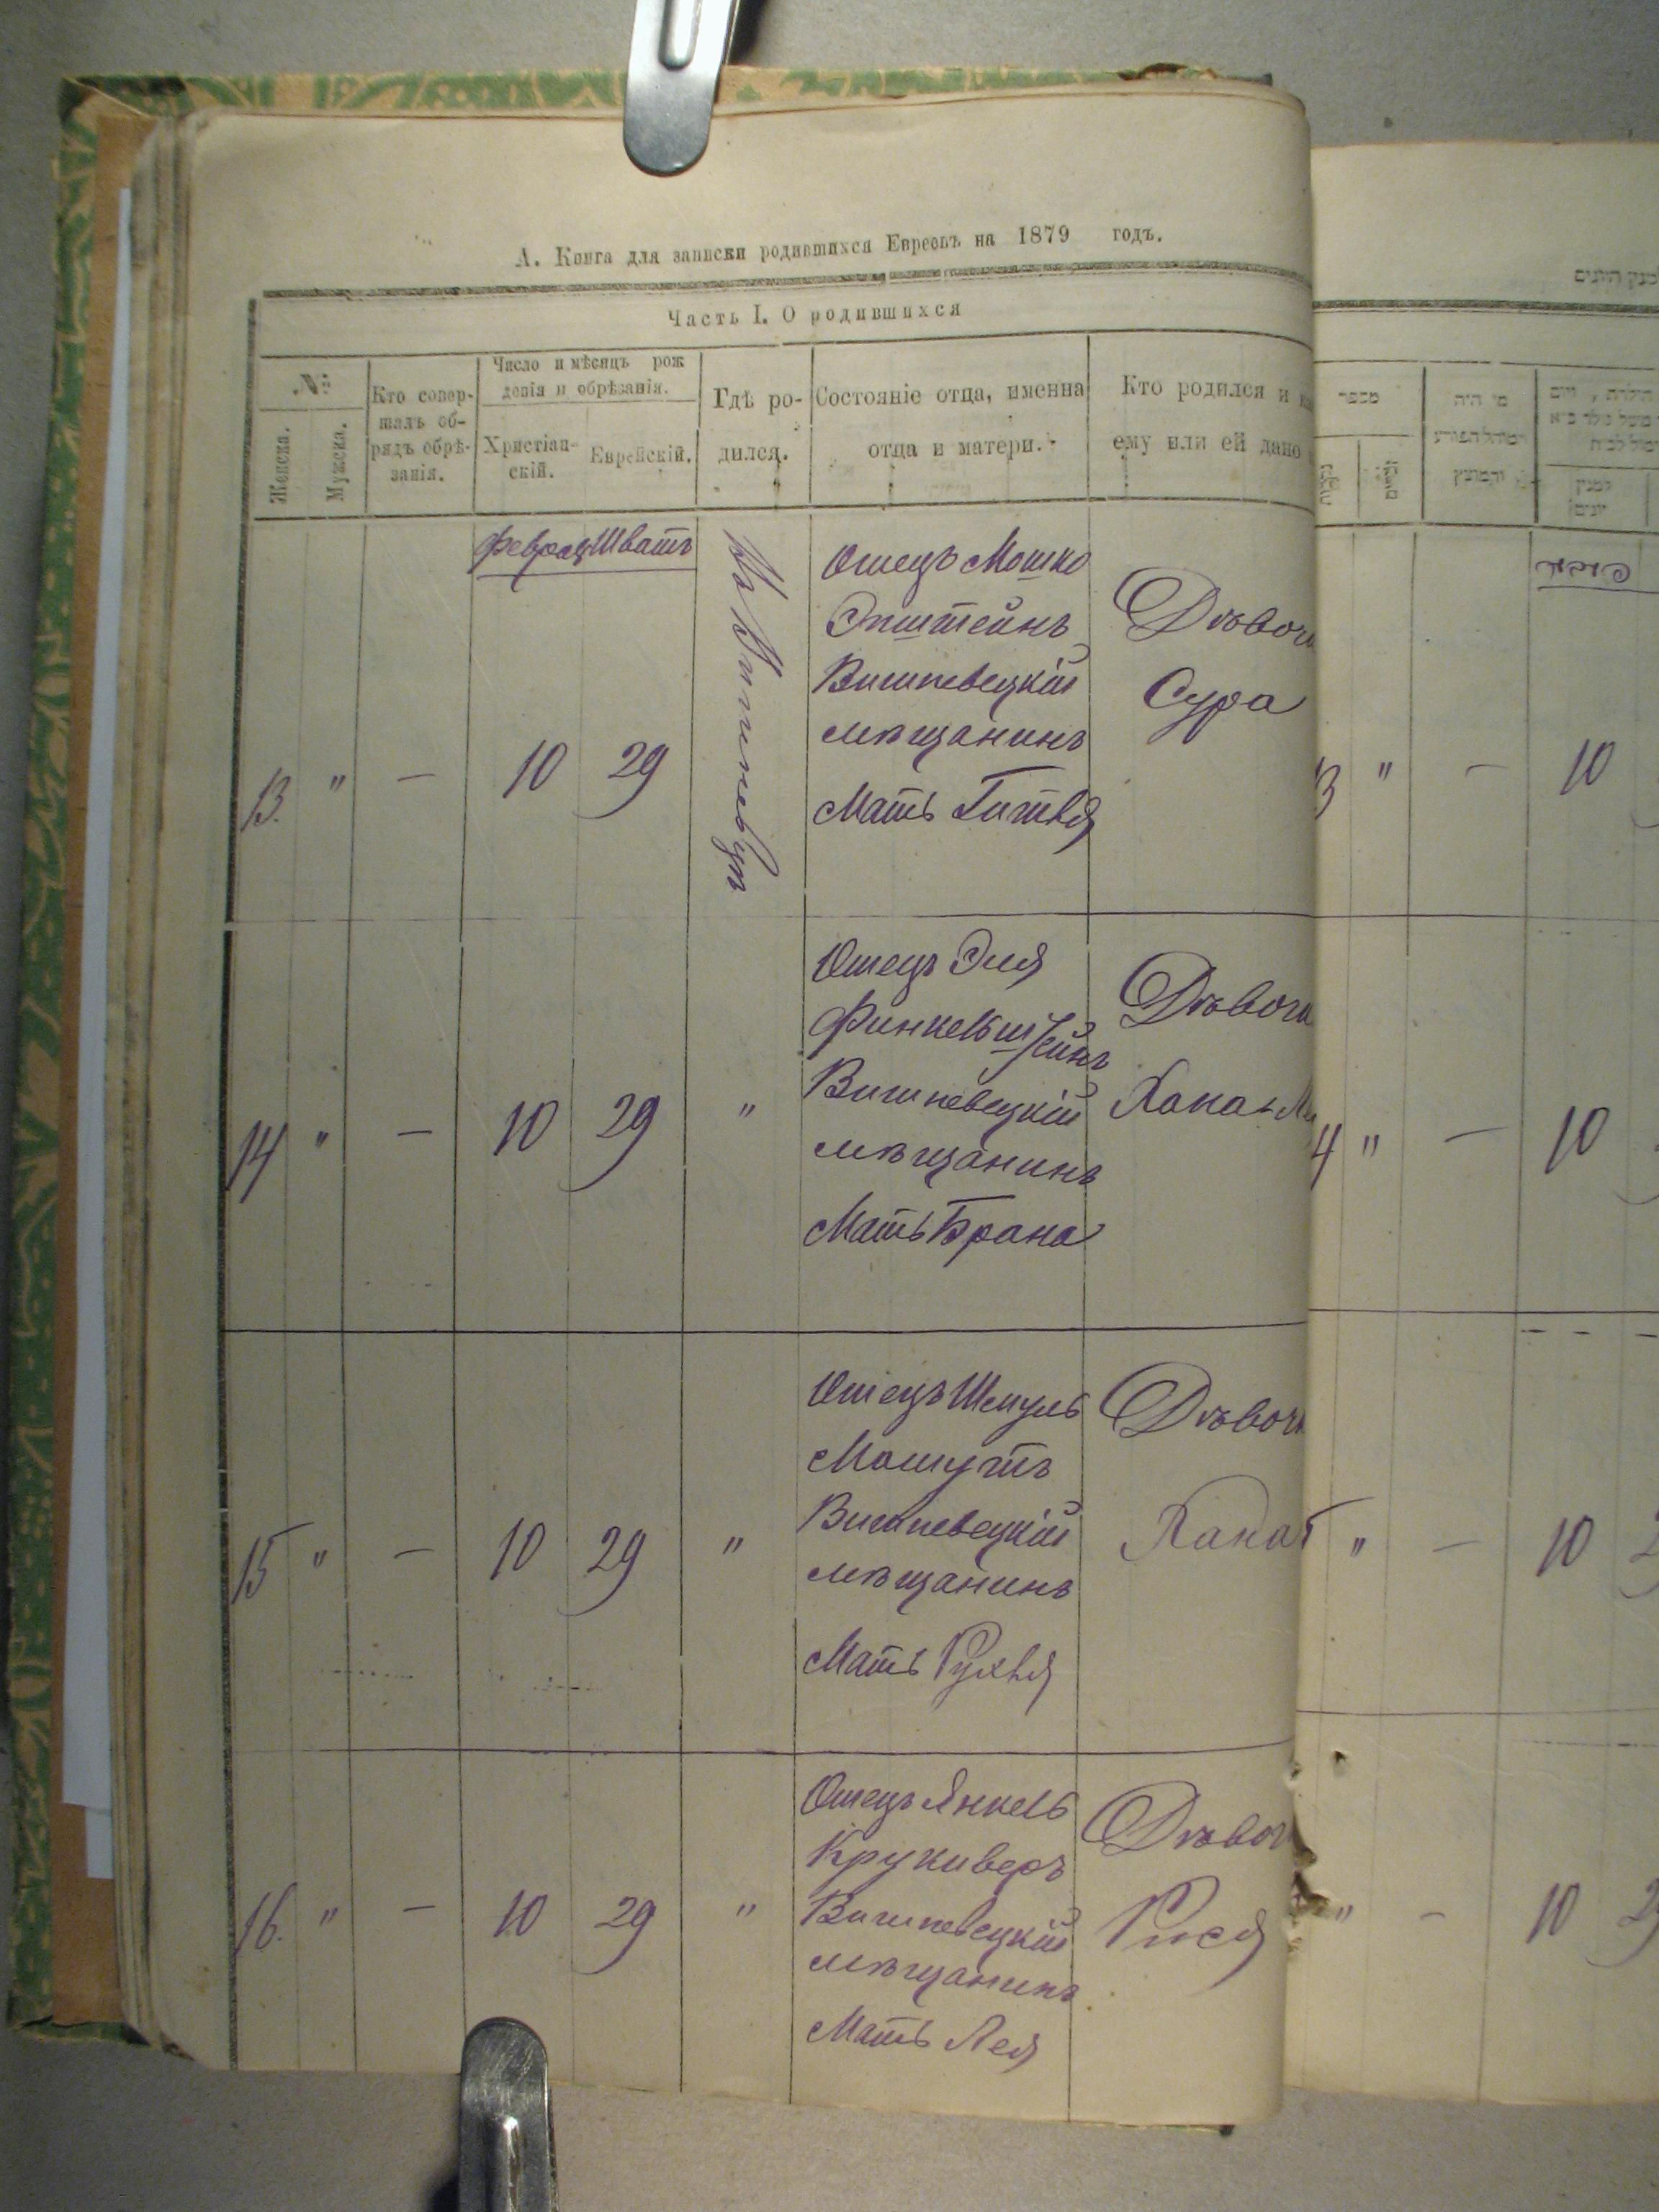 А. Книга для записки родившихся Евреевъ на 1879 годъ.
Часть I. О родившихся
№
Женска.
Мужска.
Кто совер-
шалъ об-
рядъ обрѣ-
занія.
Число и мѣсяцъ рож
денія и обрѣзанія.
Христіан-
скій.
Еврейскій.
Гдѣ ро-
дился.
Состояніе отца, именна
отца и матери.
Кто родился и
ему или ей дано
Шватъ
13. " — 10 29
Отецъ Мошко
Эпштейнъ
Вишневецкій
мѣщанинъ
Мать Гитля
Дѣвочк
Сура
14 " — 10 29 "
Отецъ Эля
Финкельштейнъ
Вишневецкій
мѣщанинъ
Мать Брана
Дѣвочк
Хана
15 " — 10 29 "
Отецъ Шмуль
Вишневецкій
мѣщанинъ
Мать Рухля
Дѣвочк
Хана
16. " — 10 29 "
Отецъ Янкель
Крукиверъ
Вишневецкій
мѣщанинъ
Мать Лея
Дѣвоч
Рися
מספר
מי היה
3 " — 10
4 " — 10
" — 10 2
" — 10 29